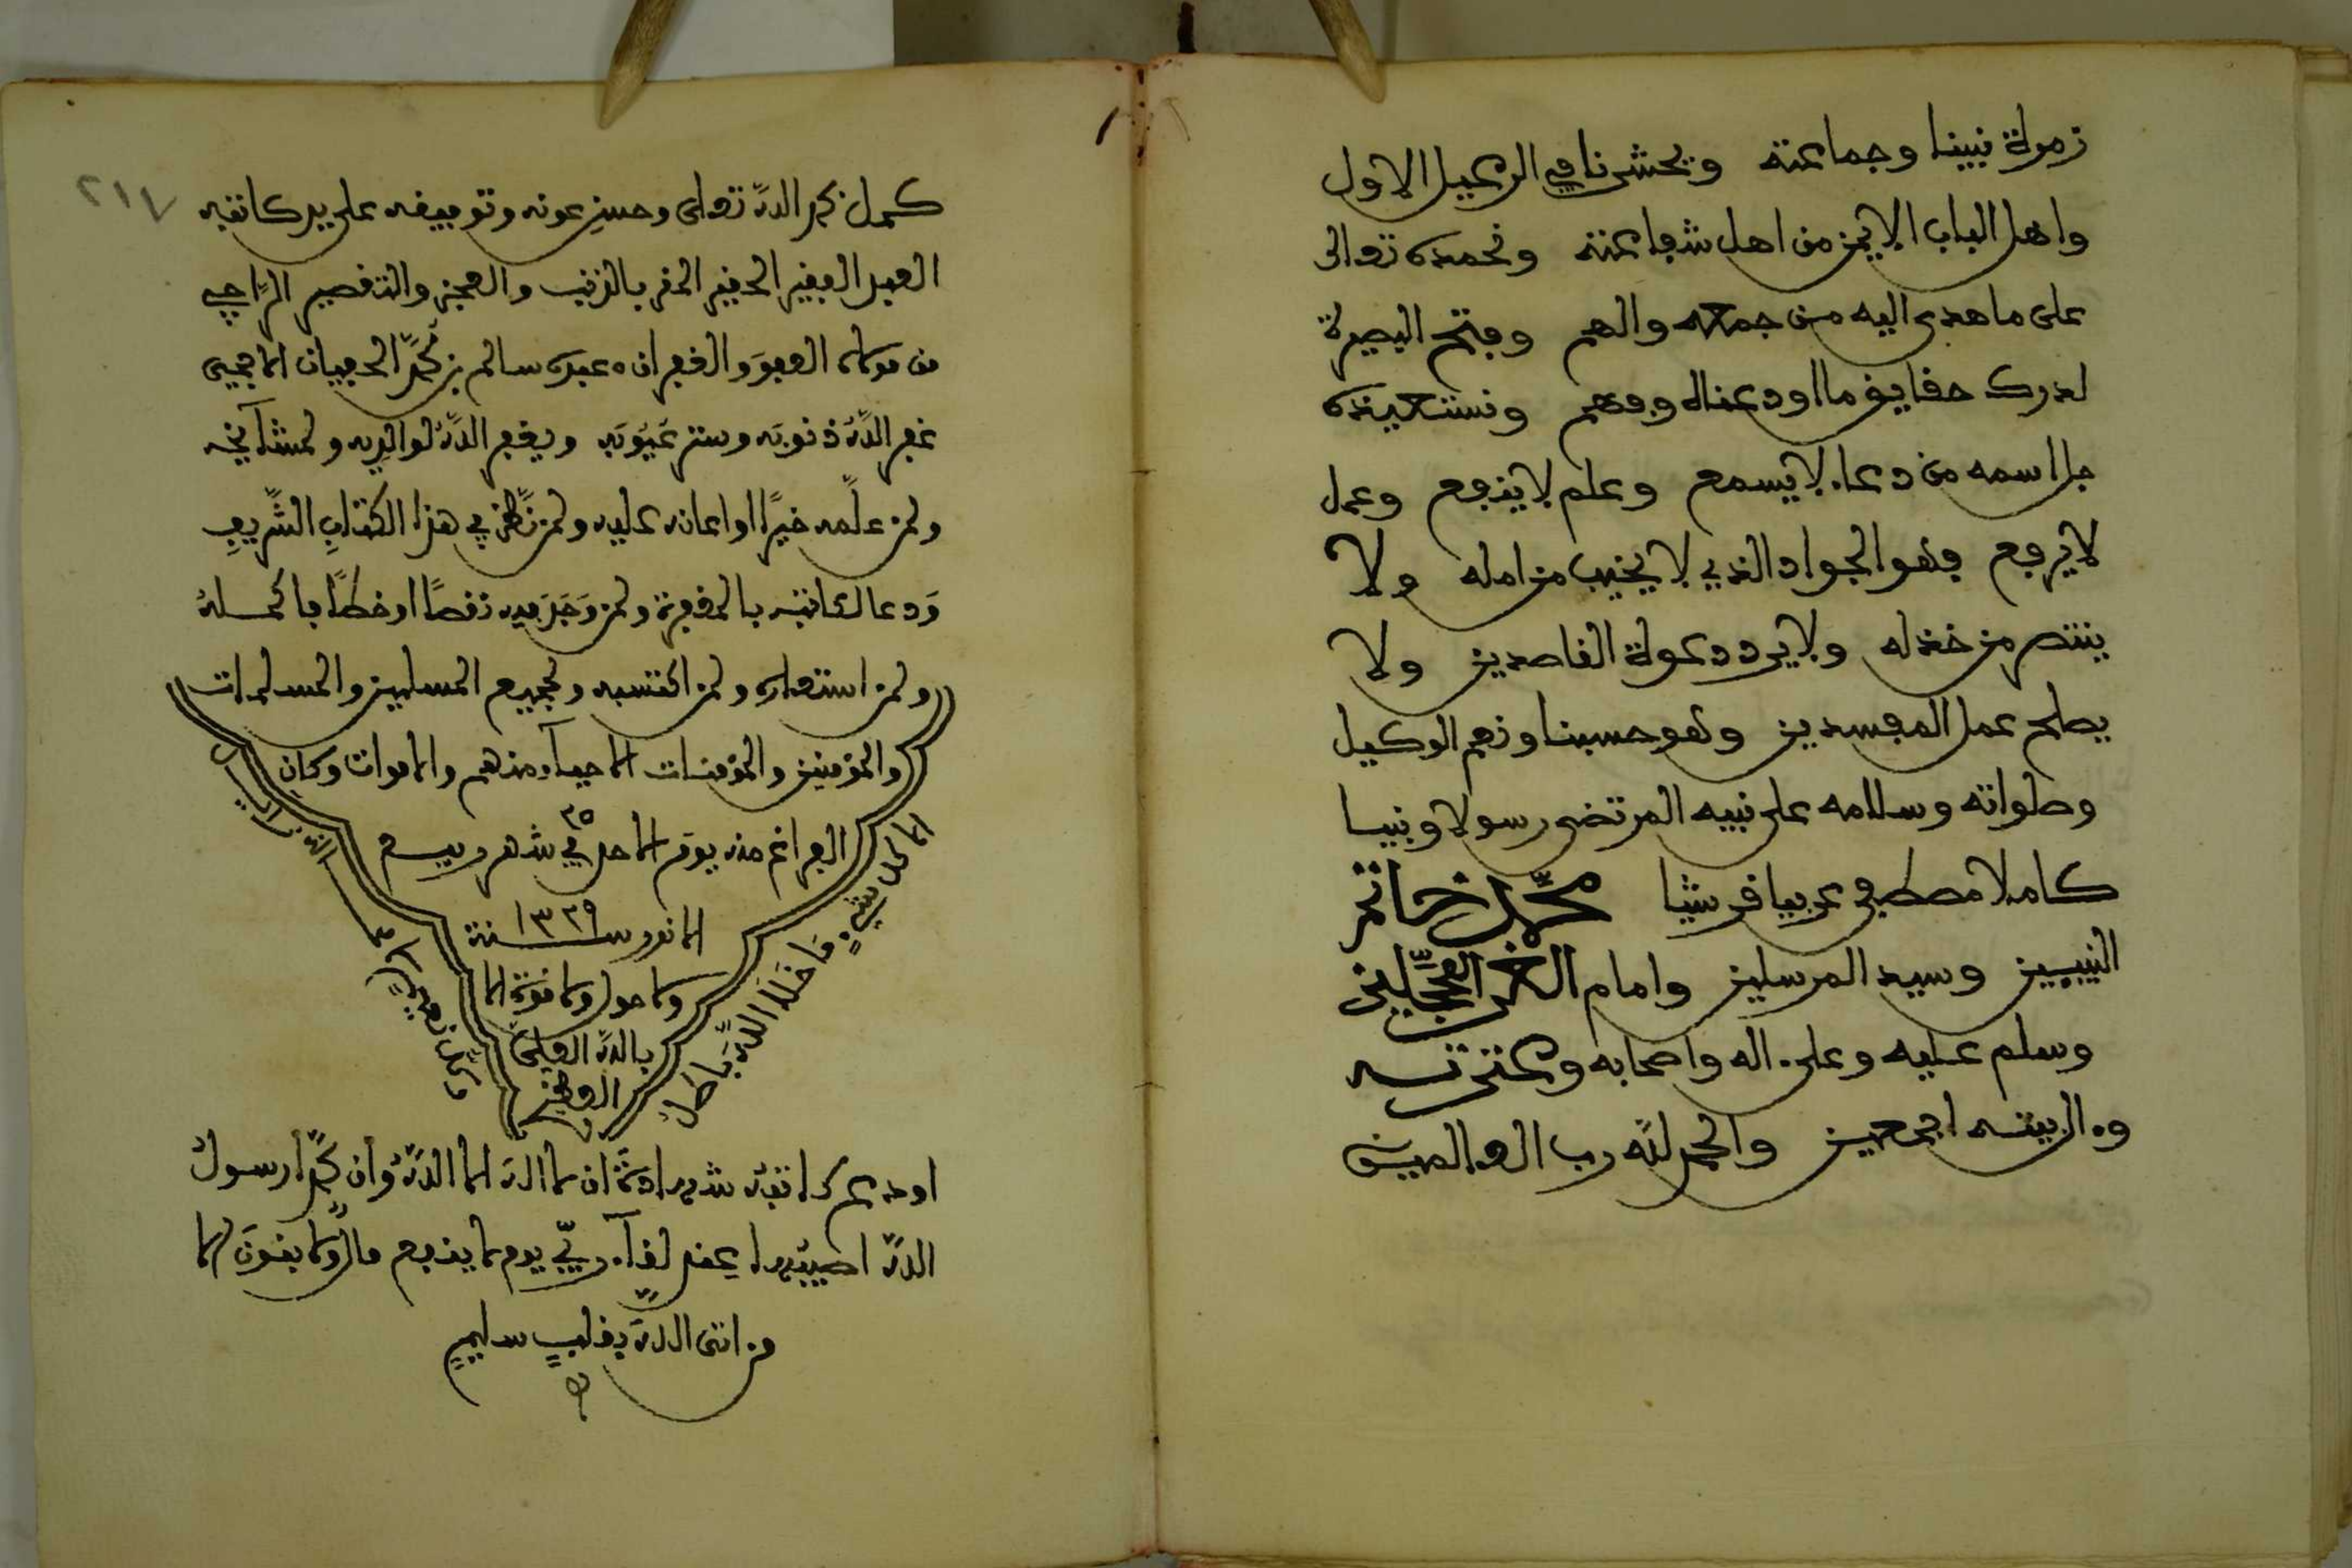 زمرة نبينا وجماعته ويحشرنا في الرعيل الاول
واهل الباب الايمن من اهل شفاعته ونحمده تعالى
على ما هدى اليه من جمعه والهم وفتح البصيرة
لدرك حقايق ما اودعناه وفهم ونستعيذه
جل اسمه من دعاء لا يسمع وعلم لا ينفع وعمل
لا يرفع فهو الجواد الذي لا يخيب من امله ولا
ينتصر من خذله ولا يرد دعوة القاصدين ولا
يصلح عمل المفسدين وهو حسبنا ونعم الوكيل
وصلواته وسلامه على نبيه المرتضى رسولا ونبيا
كاملا مصطفى عربيا قرشيا محمد خاتم
النبيين وسيد المرسلين وامام الغر المحجلين
وسلم عليه وعلى اله واصحابه وعترته
وال بيته اجمعين والحمد لله رب العالمين
٢١٧
كمل بحمد الله تعالى وحسن عونه وتوفيقه على يد كاتبه
العبد الفقير الحقير المقر بالذنب والعجز والتقصير الراجي
من مولاه العفو والغفران عبده سالم بن محمد
غفر الله ذنوبه وستر عيوبه ويغفر الله لوالديه ولمشآيخه
ولمن علمه خيرا او اعانه عليه ولمن نظر في هذا الكتاب الشريف
ودعا لكاتبه بالمغفرة ولمن وجد فيه نقصا او خطأ فاكمله
ولمن استعاره ولمن اكتسبه ولجميع المسلمين والمسلمات
والمؤمنين والمؤمنات الاحياء منهم والاموات وكان
الفراغ منه يوم الاحد في ٢٥ شهر ربيع
الانور سنة ١٣٢٩
ولا حول ولا قوة الا
بالله العلي
العظيم
الا كل شيء ما خلا الله باطل
وكل نعيم لا محالة زايل
اودع كاتبه شهادة ان لا اله الا الله وان محمدا رسول
الله اصيبها عند لقآء ربي يوم لا ينفع مال ولا بنون الا
من اتى الله بقلب سليم